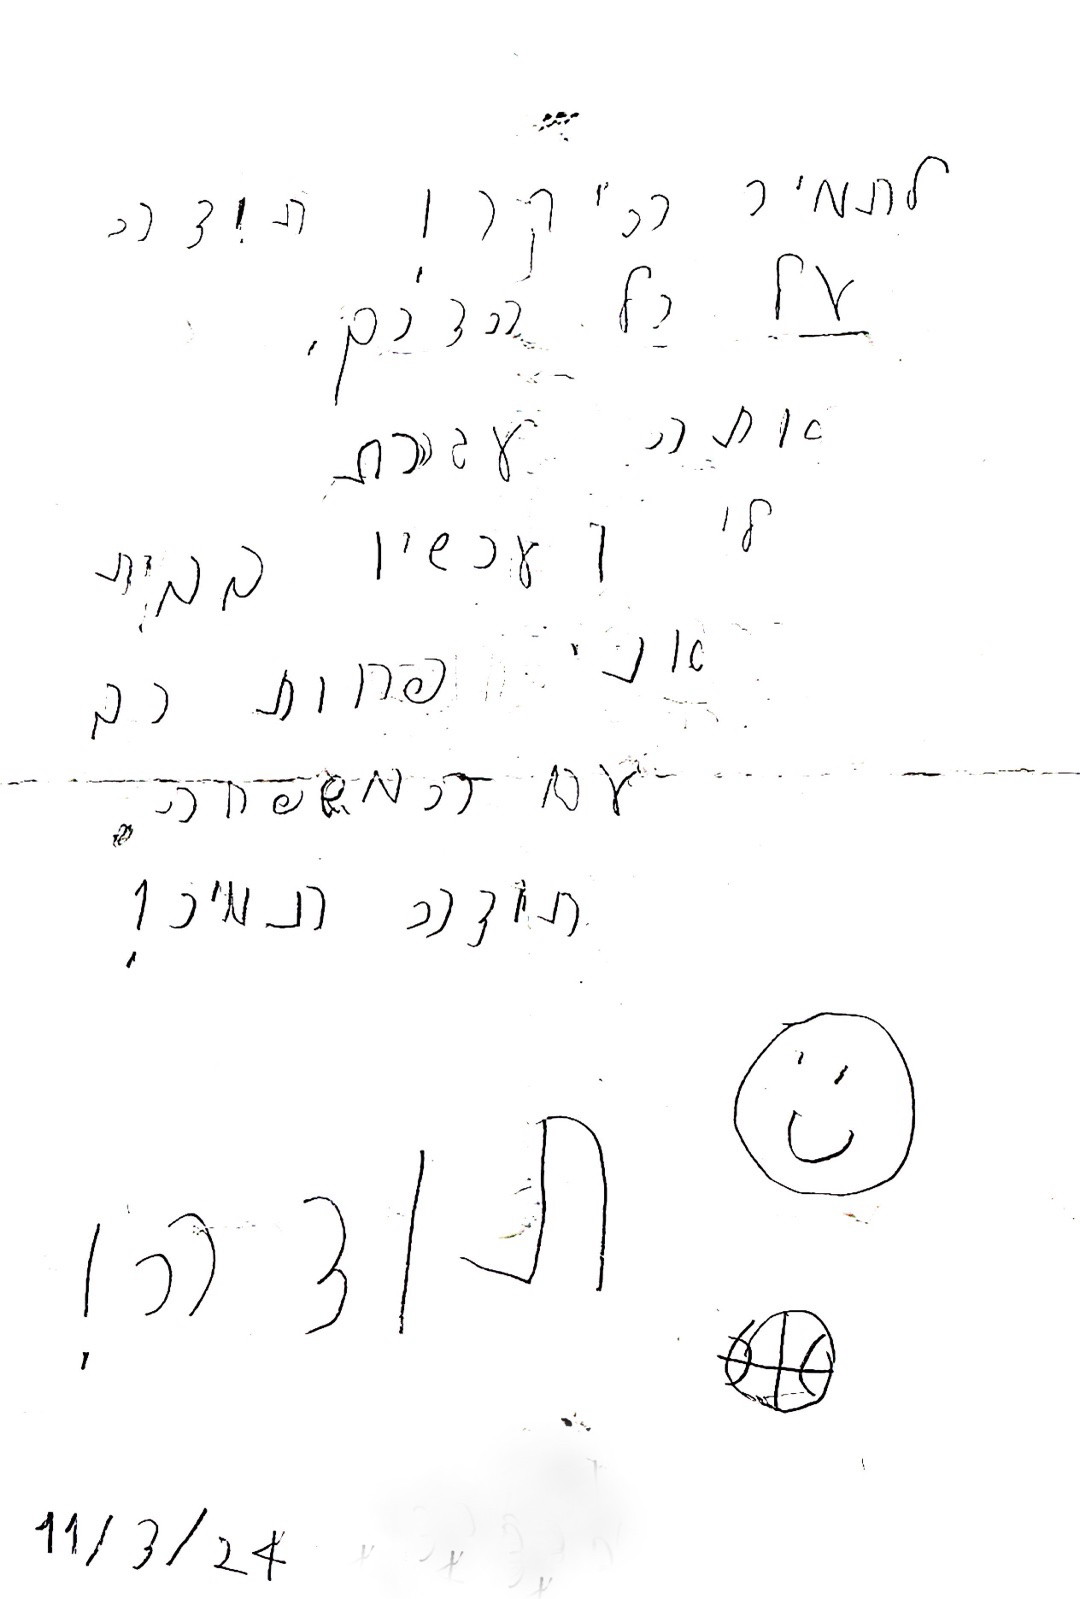 לתמיר היקר! תודה
על כל הדרכים.
אתה עזרת
לי ועכשיו בבית
אני פחות רב
עם המשפחה.
תודה תמיר!
תודה!
11/3/24